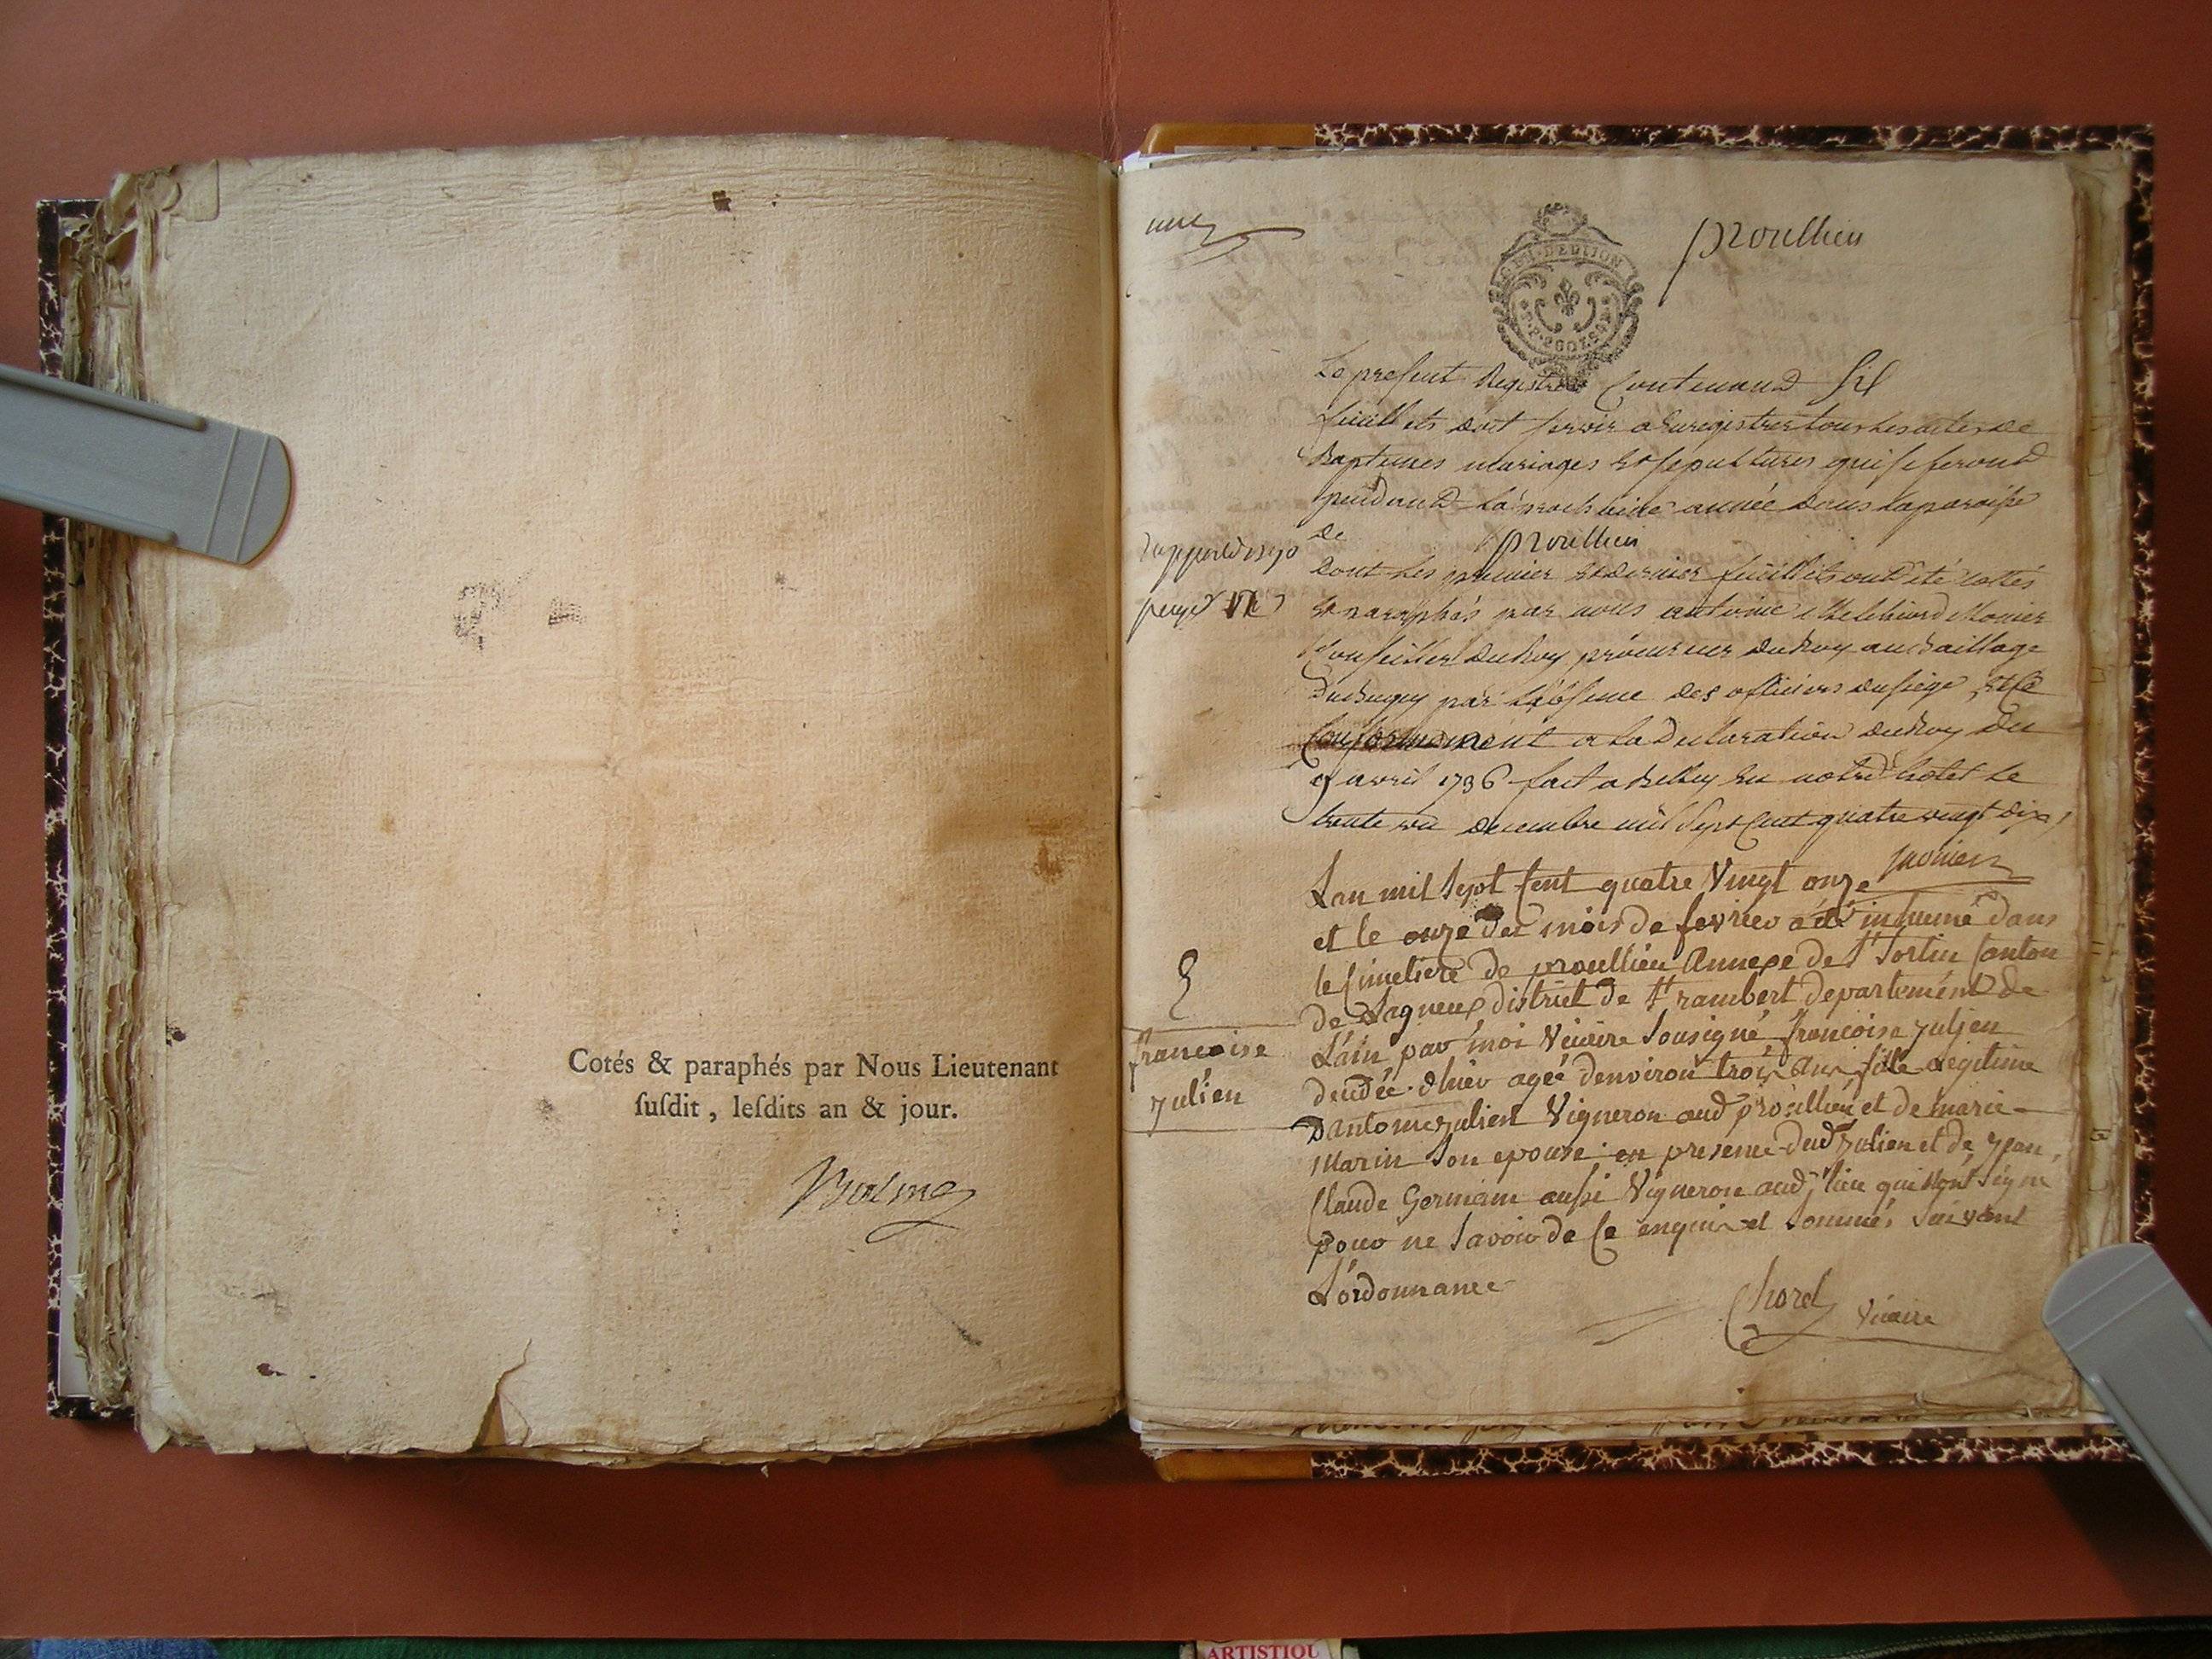 Cotés & paraphés par Nous Lieutenant
ſuſdit, leſdits an & jour.
Balme
proullieu
GEN. DE DIJON
Le present Registre Contenand six
feuillets doit servir a Enregistrer tous les actes de
Baptemes mariages Et sepultures qui se feront
pendand La prochaine année dans la paroisse
de proullieu
dont Les premier Et dernier feuillets ont été cottés
Et paraphés par nous antoine Melchiord Monier
Conseiller du Roy procureur du Roy au Baillage
du Bugey par L'absence des officiers du siege, Et Ce
Conformement a La Declaration du Roy du
9 avril 1736 fait a Belley En notre hotel Le
trente un decembre mil Sept Cent quatre vingt dix,
Monier
Lan mil sept Cent quatre Vingt onze
et le onze du mois de fevrier a été inhumé dans
le Cimetiere de proullieu Annexe de St Sortin Canton
de Lagneux district de St rambert departement de
L'ain par moi Vicaire Sousigné francoise julien
decedée d'hier ageé denviron trois ans fille legitime
D'antoine julien Vigneron aud proullieu et de marie
Marin Son epouse en presence dud julien et de jean
Claude Germain aussi Vigneron aud, lieu qui n'ont signé
pour ne Savoir de Ce enquis et Sommés Suivant
L'ordonnance
Chorel Vicaire
francoise
julien
ARTISTIQU